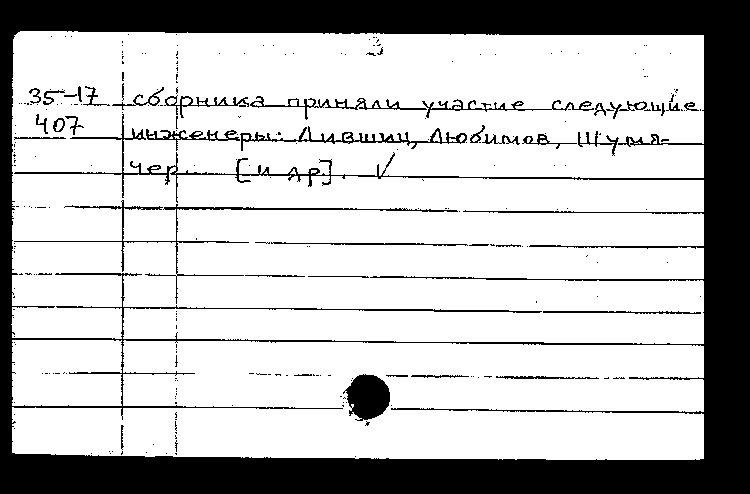 3
35-17 сборника приняли участие следующие
407 инженеры: Лившиц, Любимов, Шумя-
чер... [и др]. √